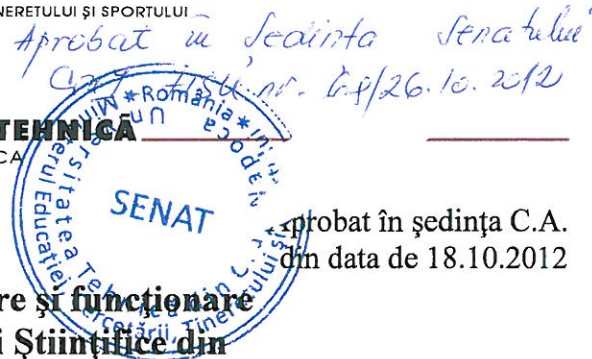 NERETULUI ŞI SPORTULUI
Aprobat în ședința Senatului
26.10.2012
TEHNICĂ
CA
SENAT
aprobat în şedinţa C.A.
din data de 18.10.2012
re şi funcţionare
i Ştiinţifice din